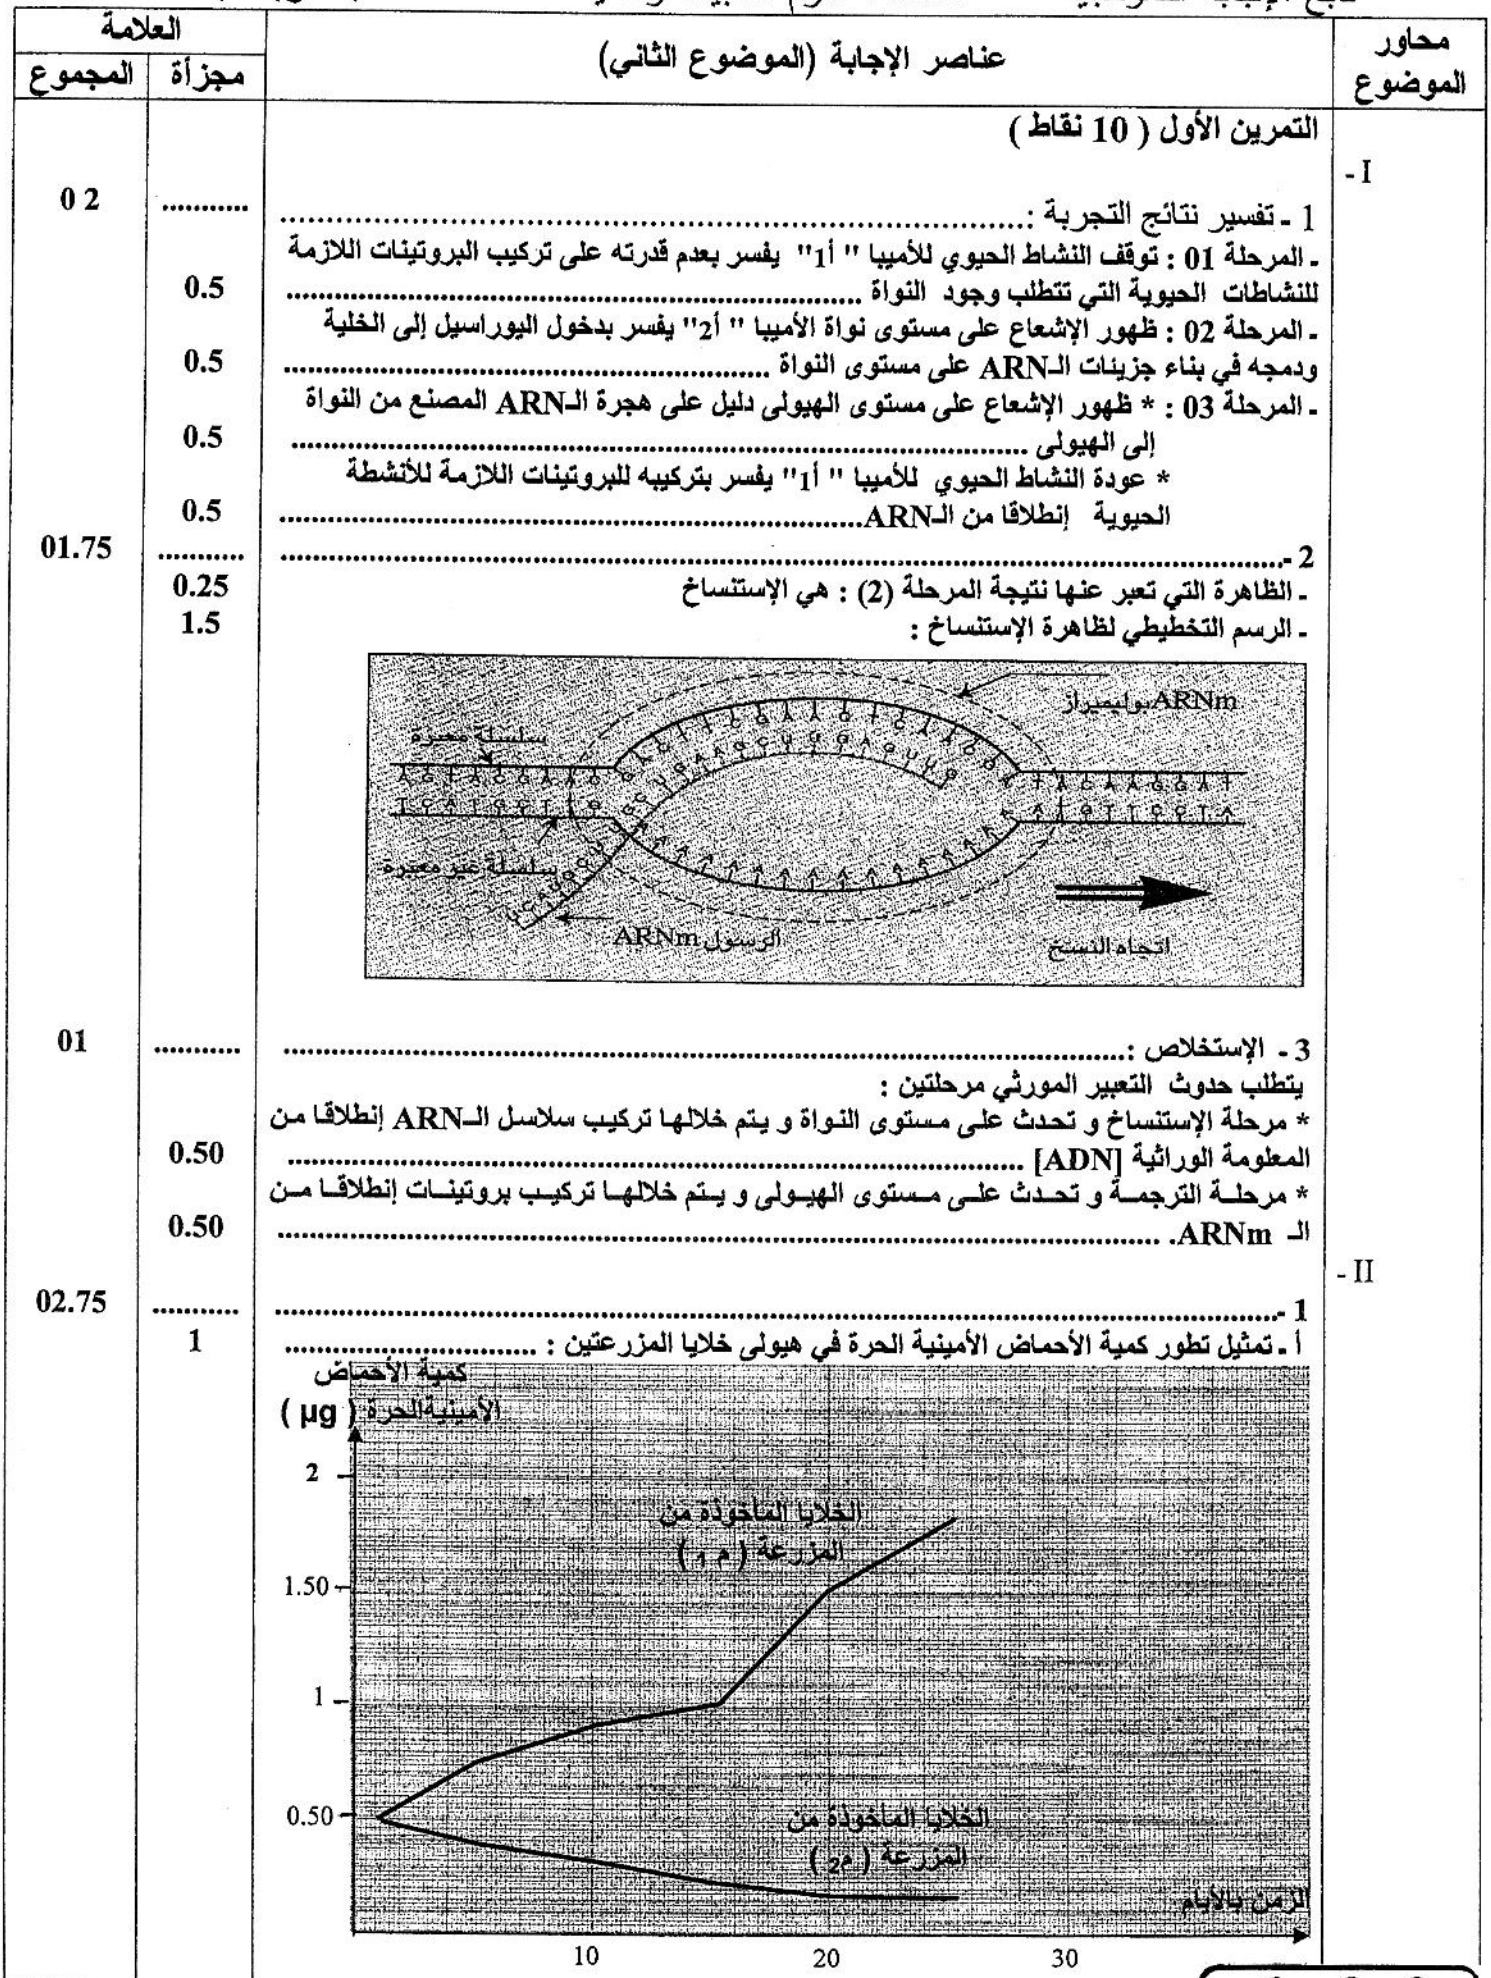 العلامة
محاور الموضوع
عناصر الإجابة (الموضوع الثاني)
مجزأة
المجموع
التمرين الأول ( 10 نقاط )
I -
1 ـ تفسير نتائج التجربة :.......... 02
ـ المرحلة 01 : توقف النشاط الحيوي للأميبا " أ1" يفسر بعدم قدرته على تركيب البروتينات اللازمة
للنشاطات الحيوية التي تتطلب وجود النواة .......... 0.5
ـ المرحلة 02 : ظهور الإشعاع على مستوى نواة الأميبا " أ2" يفسر بدخول اليوراسيل إلى الخلية
ودمجه في بناء جزيئات الـARN على مستوى النواة .......... 0.5
ـ المرحلة 03 : * ظهور الإشعاع على مستوى الهيولى دليل على هجرة الـARN المصنع من النواة
إلى الهيولى .......... 0.5
* عودة النشاط الحيوي للأميبا " أ1" يفسر بتركيبه للبروتينات اللازمة للأنشطة
الحيوية إنطلاقا من الـARN.......... 0.5
2 -.......... 01.75
ـ الظاهرة التي تعبر عنها نتيجة المرحلة (2) : هي الإستنساخ 0.25
ـ الرسم التخطيطي لظاهرة الإستنساخ : 1.5
ARNmبوليميراز
سلسلة معبرة
سلسلة غير معبرة
الرسول ARNm
اتجاه النسخ
3 ـ الإستخلاص :.......... 01
يتطلب حدوث التعبير المورثي مرحلتين :
* مرحلة الإستنساخ و تحدث على مستوى النواة و يتم خلالها تركيب سلاسل الـARN إنطلاقا من
المعلومة الوراثية [ADN] .......... 0.50
* مرحلة الترجمة و تحدث على مستوى الهيولى و يتم خلالها تركيب بروتينات إنطلاقا من
الـ ARNm. .......... 0.50
II -
1 -.......... 02.75
أ ـ تمثيل تطور كمية الأحماض الأمينية الحرة في هيولى خلايا المزرعتين : .......... 1
كمية الأحماض
الأمينية الحرة ( µg )
2
الخلايا المأخوذة من
المزرعة ( م 1 )
1.50
1
0.50
الخلايا المأخوذة من
المزرعة ( م2 )
الزمن بالأيام
10 20 30